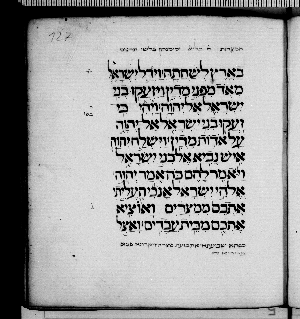 127
בארץ לשחתה וידל ישראל
מאד מפני מדין ויזעקו בני
ישראל אל יהוה ויהי כי
זעקו בני ישראל אל יהוה
על אדות מדין וישלח יהוה
איש נביא אל בני ישראל
ויאמר להם כה אמר יהוה
אלהי ישראל אנכי העליתי
אתכם ממצרים ואוציא
אתכם מבית עבדים ואצל